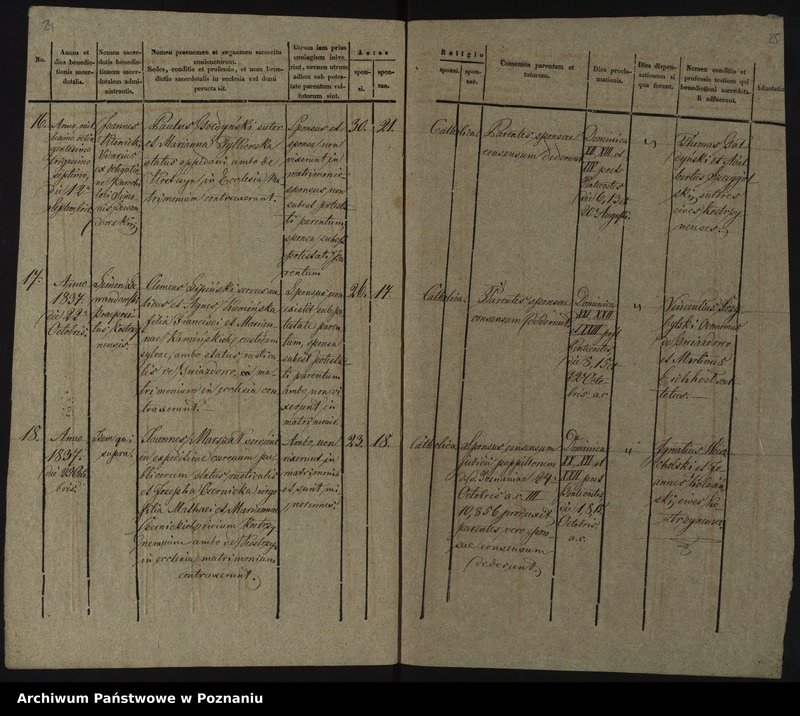 24
25
No.
Annus et
dies benedic-
tionis sacer-
dotalis.
Nomen sacer-
dotis benedic-
tionem sacer-
dotalem admi-
nistrantis.
Nomen praenomen et cognomen sacrocitu
coniunctorum.
Sedes, conditio et professio, et num bene-
dictio sacerdotalis in ecclesia vel domi
peracta sit.
Utrum iam prius
coniugium inive-
rint, necnon utrum
adhuc sub potes-
tate parentum vel
tutorum sint.
Aetas
spon-
si.
spon-
sae.
Religio
sponsi.
spon-
sae.
Consensus parentum et
tutorum.
Dies procla-
mationis.
Dies dispen-
sationum si
qua forent.
Nomen conditio et
professio testium qui
benedictioni sacerdota-
li adfuerunt.
Adnotatio
16.
Anno mil
lesimo octin
gentesimo
trigesimo
septimo,
die 12a
Septembris
Joannes
Vicarius
ex obligatio
ne Parochi
loci Simo
nis Lewan
dowski
Paulus sutor
et Marianna
status oppidani ambo de
Kostrzyn in Ecclesia Ma
trimonium contraxerunt.
Sponsus et
sponsa non
vixerunt in
matrimonio
sponsus non
subest potesta
ti parentum,
sponsa subest
potestati pa
rentum
30.
21.
Catholica.
Parentes sponsae
consensum dederunt
Dominica
XII, XIII et
XIV post
Pentecostes
die 6, 13 et
20a Augusti.
"
Thomas
et Adal
bertus
ski, sutores
cives Kostrzy
nenses.
17.
Anno
1837.
die 22a
Octobris.
Simon Le
wandowski
Praeposi
tus Kostrzy
nensis.
Clemens Lipiński servus au
licus et Agnes Kumińska
filia Francisci et Marian
nae Kamińskich custodum
sylvae, ambo status rustica
lis de Gwiazdowo, ma
trimonium in ecclesia con
traxerunt.
Sponsus non
existit sub po
testate paren
tum, sponsa
subest potesta
ti parentum
ambo non vi
xerunt in
matrimonio.
26.
17.
Catholica.
Parentes sponsae
consensum dederunt.
Dominica
XXI, XXII
et XXIII post
Pentecostes
die 8, 15 et
22a Octo
bris a.c.
"
Vincentius
de Gwiazdowo
et Martinus
18.
Anno
1837.
die 23 Octo
bris.
Idem qui
supra.
Joannes Marszał serviens
in expeditione curruum pu
blicorum status rusticalis
et Josepha Czernicka virgo
filia Mathaei et Mariannae
Czernickich civium Kostrzy
nensium ambo de Kostrzyn
in ecclesia matrimonium
contraxerunt.
Ambo non
vixerunt in
matrimonio
et sunt mi
norennes.
23.
18.
Catholica.
Sponsus consensum
Judicii puppillorum
d.d. Posnaniae 24
Octobris a.c. III
10,856 produxit
parentes vero spon
sae consensum
dederunt.
Dominica
XX, XXI et
XXII post
Pentecostes
die 1, 8, 15
Octobris
a.c.
"
Ignatius
et Jo
annes
ski, cives Ko
strzynenses.
Archiwum Państwowe w Poznaniu